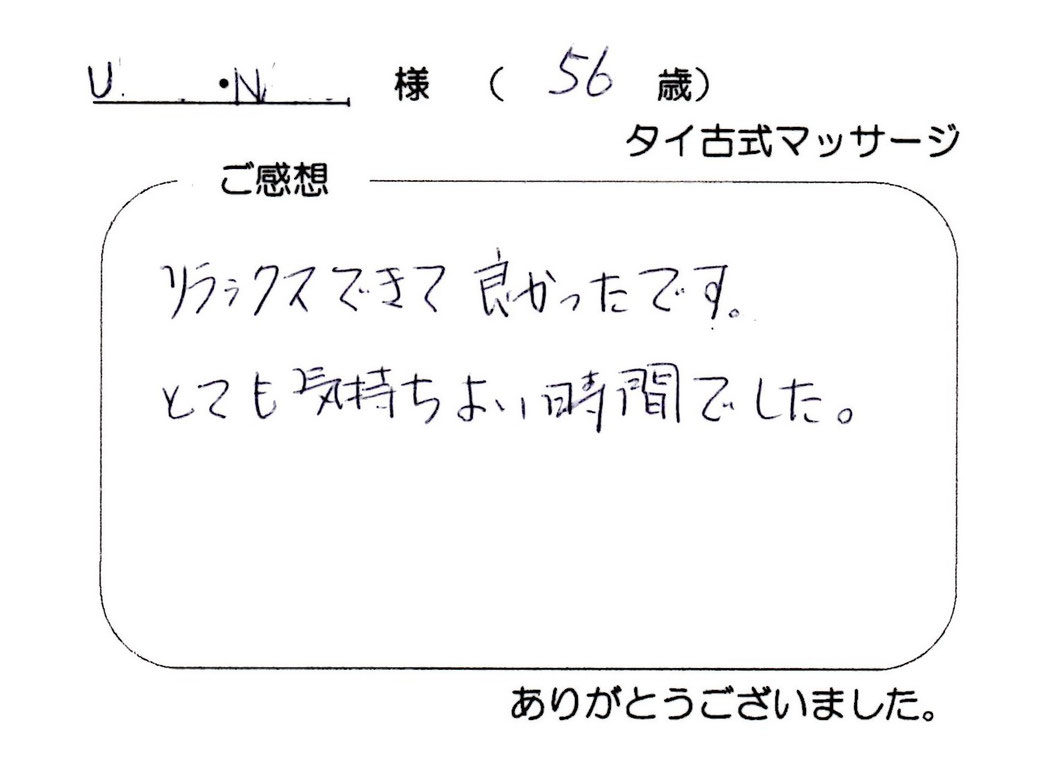 U ・N 様 ( 56 歳)
タイ古式マッサージ
ご感想
リラックスできて良かったです。
とても気持ちよい時間でした。
ありがとうございました。